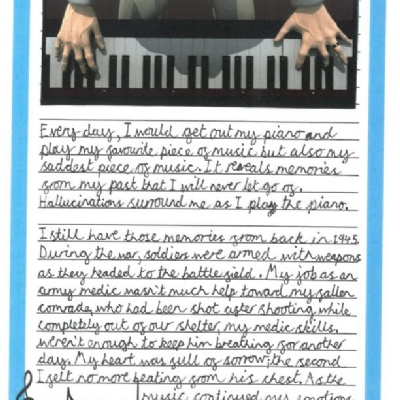 Every day, I would get out my piano and
play my favourite piece of music but also my
saddest piece of music. It reveals memories
from my past that I will never let go of.
Hallucinations surround me as I play the piano.
I still have those memories from back in 1945.
During the war, soldies were armed with weapons
as they headed to the battle field. My job as an
army medic wasn't much help toward my fallen
comrade, who had been shot after shooting while
completely out of our shelter, my medic skills.
weren't enough to keep him breathing for another
day. My heart was full of sorrow; the second
I felt no more beating from his chest. As the
music continued my emotions